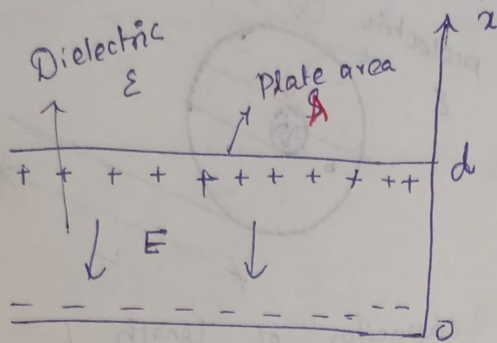 x
Dielectric
ε
Plate area
A
+ + + + + + + + + + +
d
E
- - - - - - - - - -
0